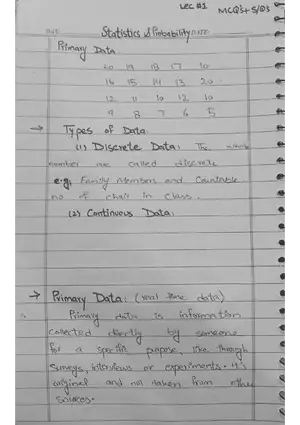 Lec #1 MCQ's + S/Q's
Statistics & Probability
Primary Data
20 19 18 17 10
16 15 14 13 20
12 11 10 12 10
9 8 7 6 5
→ Types of Data
(1) Discrete Data: The whole
number are called discrete
e.g, Family Members and Countable
no of chair in class.
(2) Continuous Data:
→ Primary Data: (real time data)
Primary data is information
collected directly by someone
for a specific purpose, like through
surveys, interviews or experiments. It's
original and not taken from other
sources.